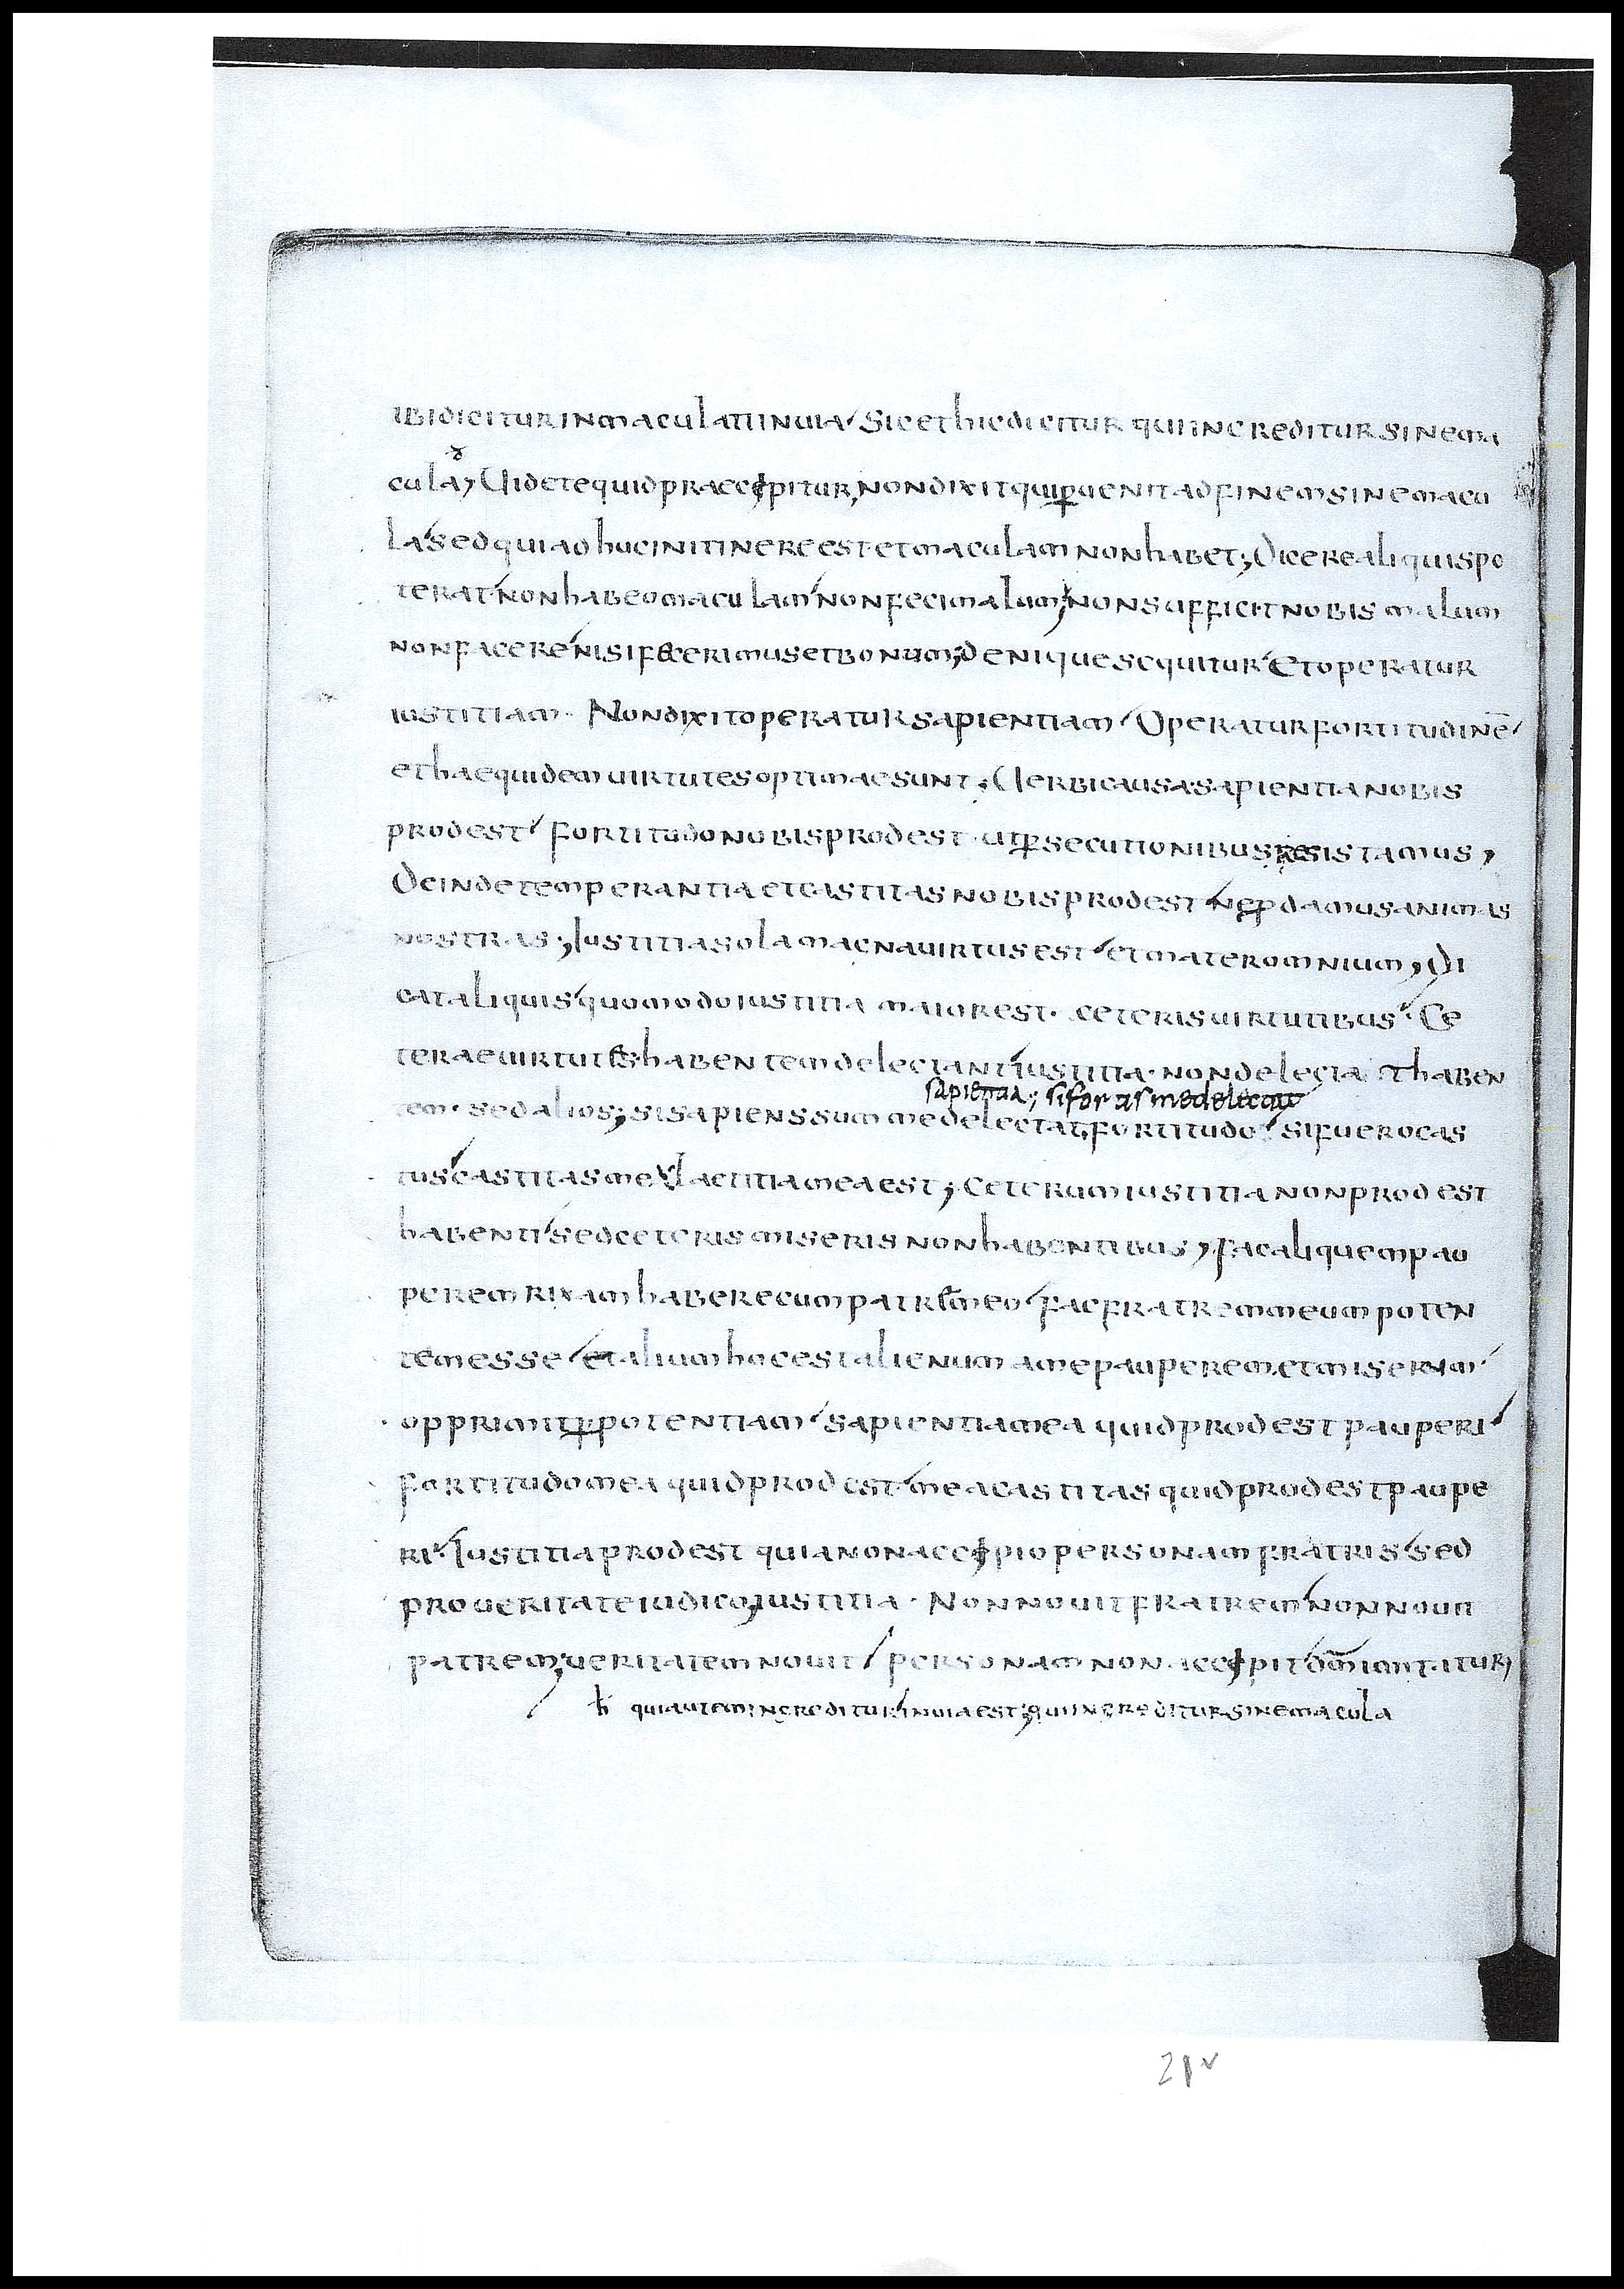 ibidicitur inmaculati in uia Sic et hic dicitur qui increditur sine ma
cula; Uidete quid praecipitur, non dixit qui ꝑuenit ad finem sine macu
la sed qui adhuc in itinere est et maculam non habet; Dicere aliquis po
terat non habeo maculam non feci malum; non sufficit nobis malum
non facere nisi fecerimus et bonum; denique sequitur Et operatur
iustitiam · Non dixit operatur sapientiam Operatur fortitudinē
et hae quidem uirtutes optimae sunt; Uerbi causa sapientia nobis
prodest fortitudo nobis prodest · ut ꝑsecutionibus resistamus,
Deinde temperantia et castitas nobis prodest ne ꝑdamus animas
nostras; Iustitia sola magna uirtus est et mater omnium, Di
cat aliquis quomodo iustitia maior est · ceteris uirtutibus Ce
terae uirtutes habentem delectant iustitia · non delectat haben
sapientia; si for as me delectat
tem · sed alios; si sapiens sum me delectat, fortitudo si fuero cas
tus castitas me laetitia mea est; Ceterum iustitia non prodest
habenti sed ceteris miseris non habentibus, Fac aliquem pau
perem rixam habere cum patre meo fac fratrem meum poten
tem esse et alium hoc est alienum a me pauperem et miserum
opprimit ꝑ potentiam sapientia mea quid prodest pauperi
fortitudo mea quid prodest mea castitas quid prodest paupe
ri Iustitia prodest quia non accipio personam fratris sed
pro ueritate iudico, iustitia · Non nouit fratrem non nouit
patrem, ueritatem nouit personam non accipit dm̄ imitatur,
ħ qui autem increditur in uia est; qui increditur sine macula
21v